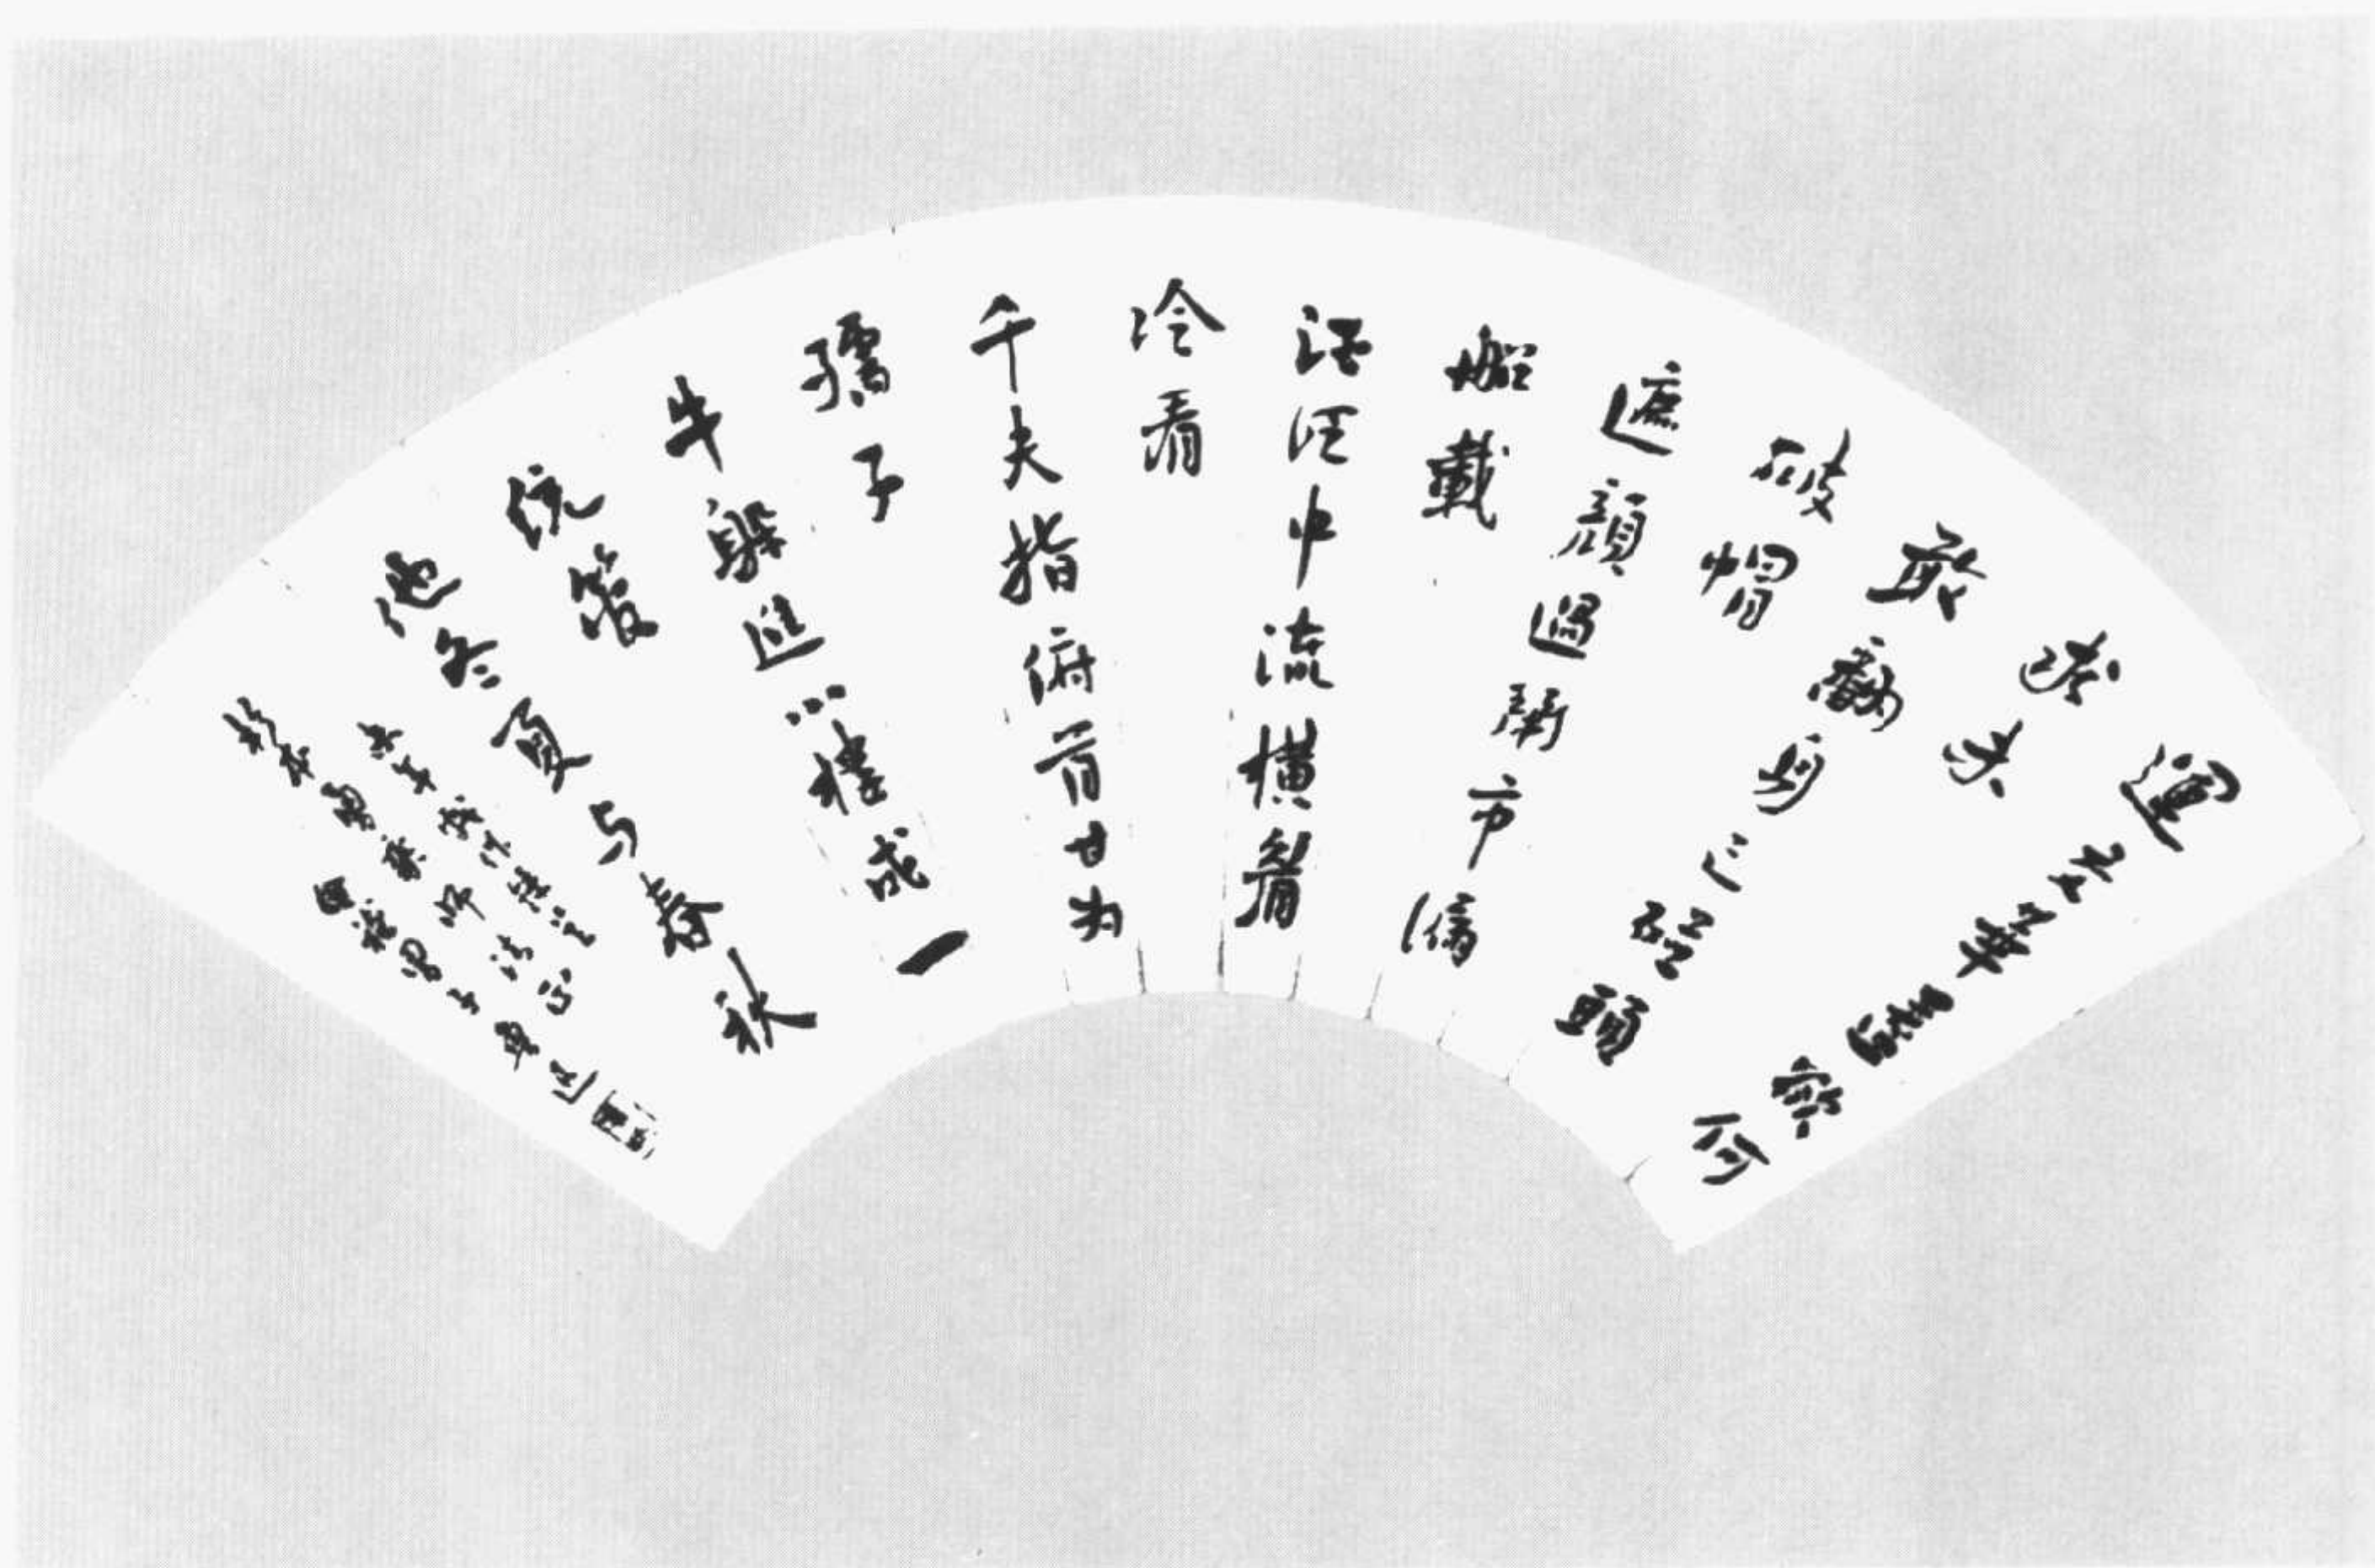 運交華蓋欲何
求未
敢翻身已碰頭
破帽
遮顏過鬧市漏
船載
酒泛中流橫眉
冷看
千夫指俯首甘为
孺子
牛躲進小樓成一
统管
他冬夏与春秋
未年戲作錄呈
杉本勇乗师法正
魯迅